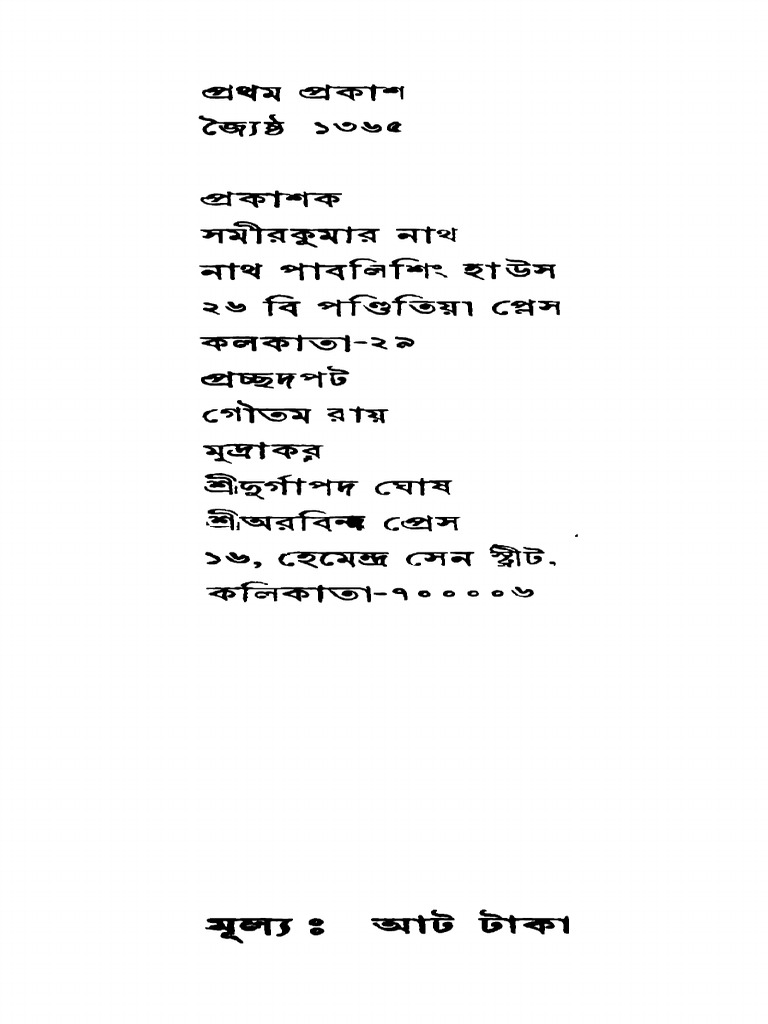 প্রথম প্রকাশ
জ্যৈষ্ঠ ১৩৬৫
প্রকাশক
সমীরকুমার নাথ
নাথ পাবলিশিং হাউস
২৬ বি পণ্ডিতিয়া প্লেস
কলকাতা-২৯
প্রচ্ছদপট
গৌতম রায়
মুদ্রাকর
শ্রীদুর্গাপদ ঘোষ
শ্রীঅরবিন্দ প্রেস
১৬, হেমেন্দ্র সেন স্ট্রীট,
কলিকাতা-৭০০০০৬
মূল্য : আট টাকা